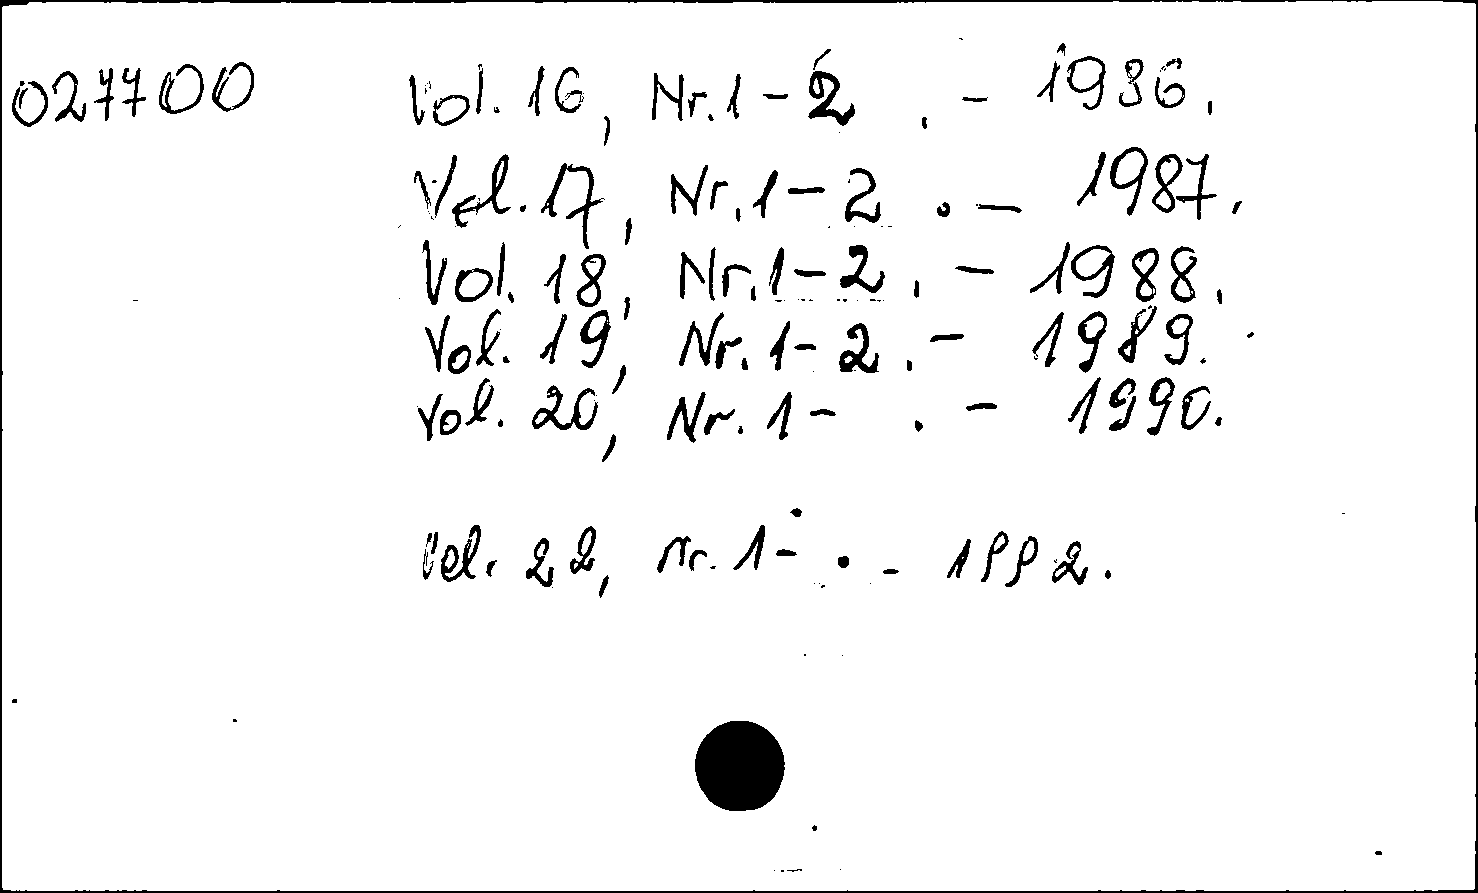 027700 Vol. 16, Nr. 1-2 . - 1986.
Vol. 17, Nr. 1-2 . - 1987.
Vol. 18, Nr. 1-2 . - 1988.
Vol. 19, Nr. 1-2 . - 1989.
Vol. 20, Nr. 1- . - 1990.
Vol. 22, Nr. 1- . - 1992.